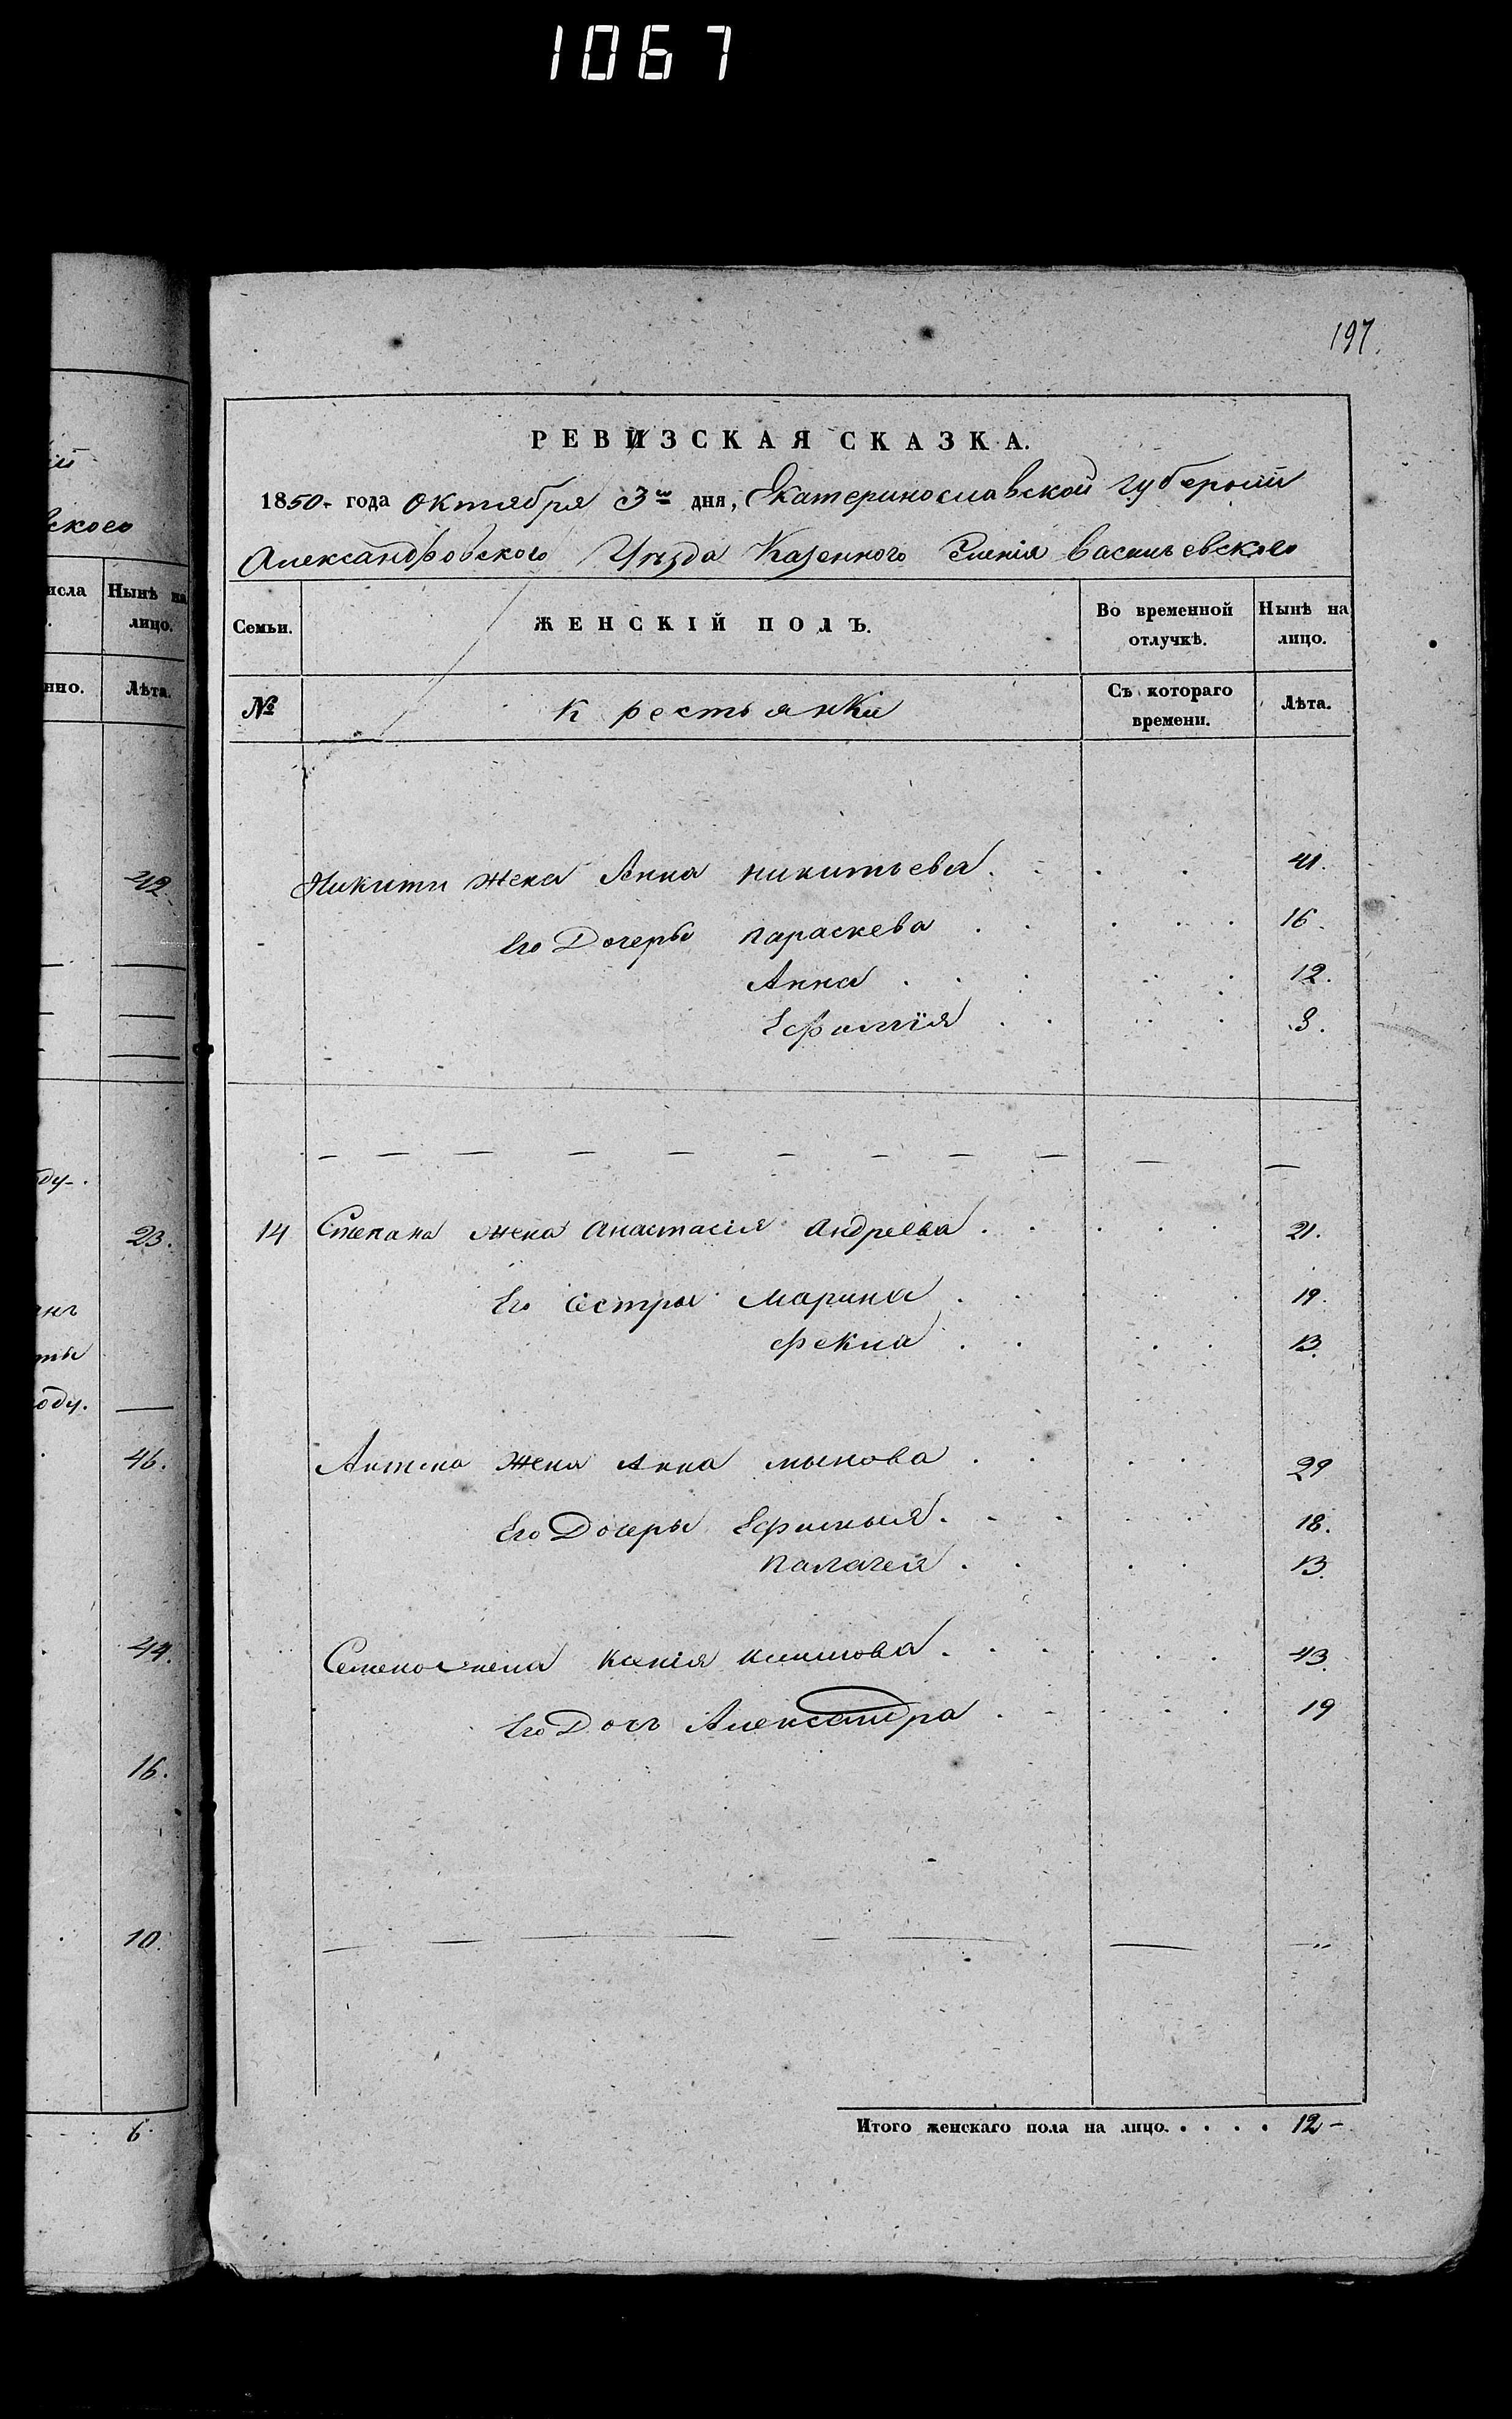 1067
197.
ій
вского
исла Нынѣ на
лицо.
нно. Лѣта.
42.
ду.
23.
анъ
ты
оду.
46.
44.
16.
10.
6.
РЕВИЗСКАЯ СКАЗКА.
1850. года октября 3го дня, Екатеринославской губерніи
Александровского Уѣзда Казенного Селенія Васильевского
Семьи. ЖЕНСКІЙ ПОЛЪ. Во временной отлучкѣ. Нынѣ на лицо.
№ Крестьянки Съ котораго времени. Лѣта.
Никити жена Анна Никитьева 41.
Его Дочеры Параскева 16.
Анна 12.
Ефимія 3.
14 Степана жена Анастасія Андреева 21.
Его Сестры Марина 19.
Фекла 13.
Антона жена Анна 29
Его Дочеры Ефимыя 18.
Палагея 13.
Семена жена Ксенія Климова 43.
Его Дочъ Александра 19
Итого женскаго пола на лицо. . . . . 12-